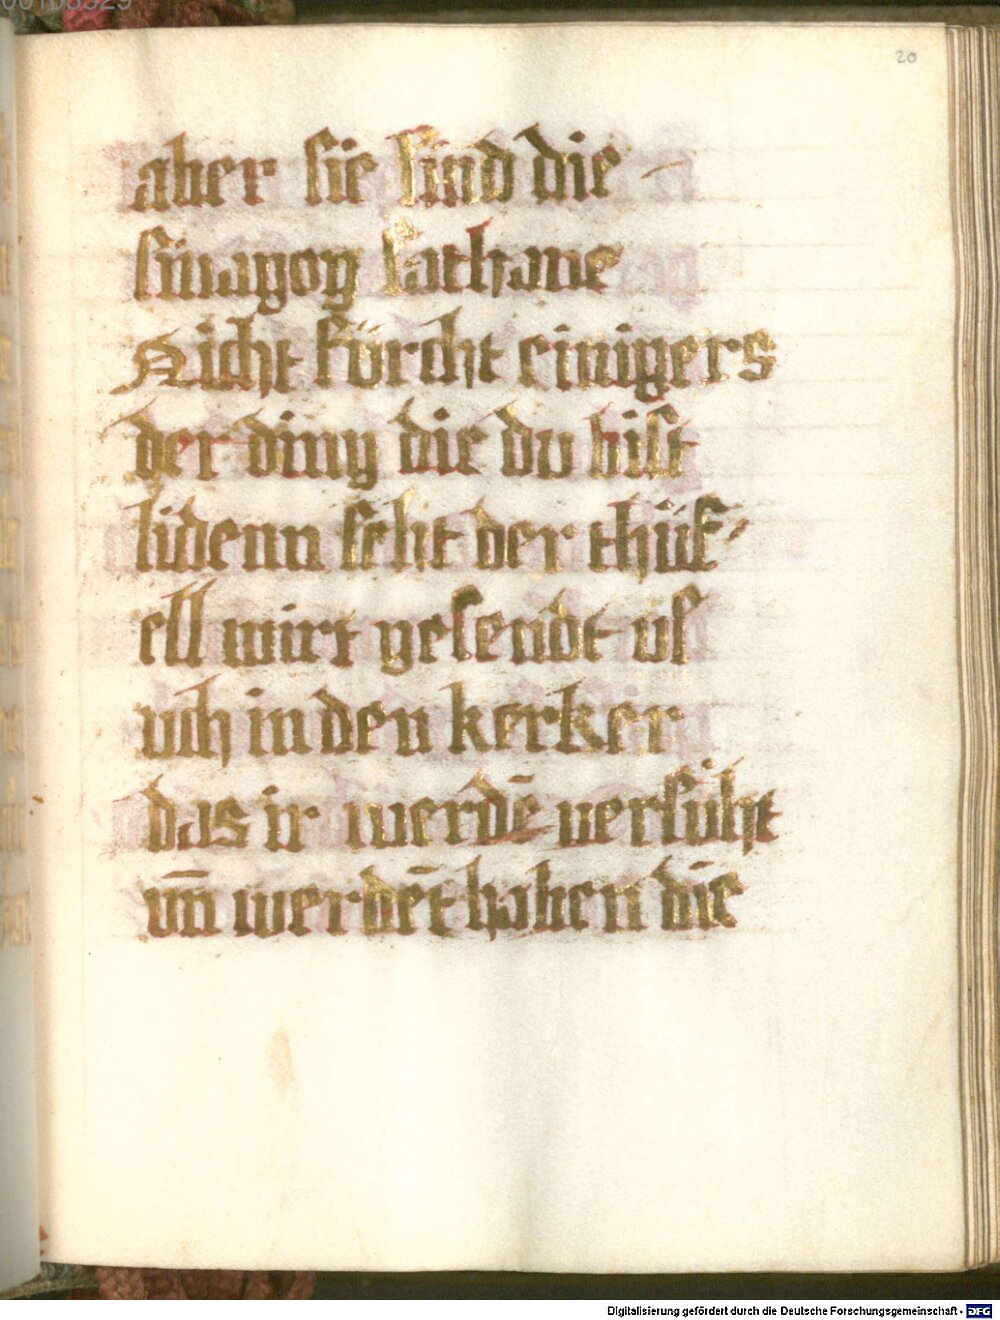 20
aber sie sind die
sinagog sathane
Nicht fürcht einigers
der ding die du bist
lidenn seht der thüf-
ell wirt gesendt us
uch in den kerker
das ir werdē versůht
vm̄ werdēt haben die
Digitalisierung gefördert durch die Deutsche Forschungsgemeinschaft - DFG